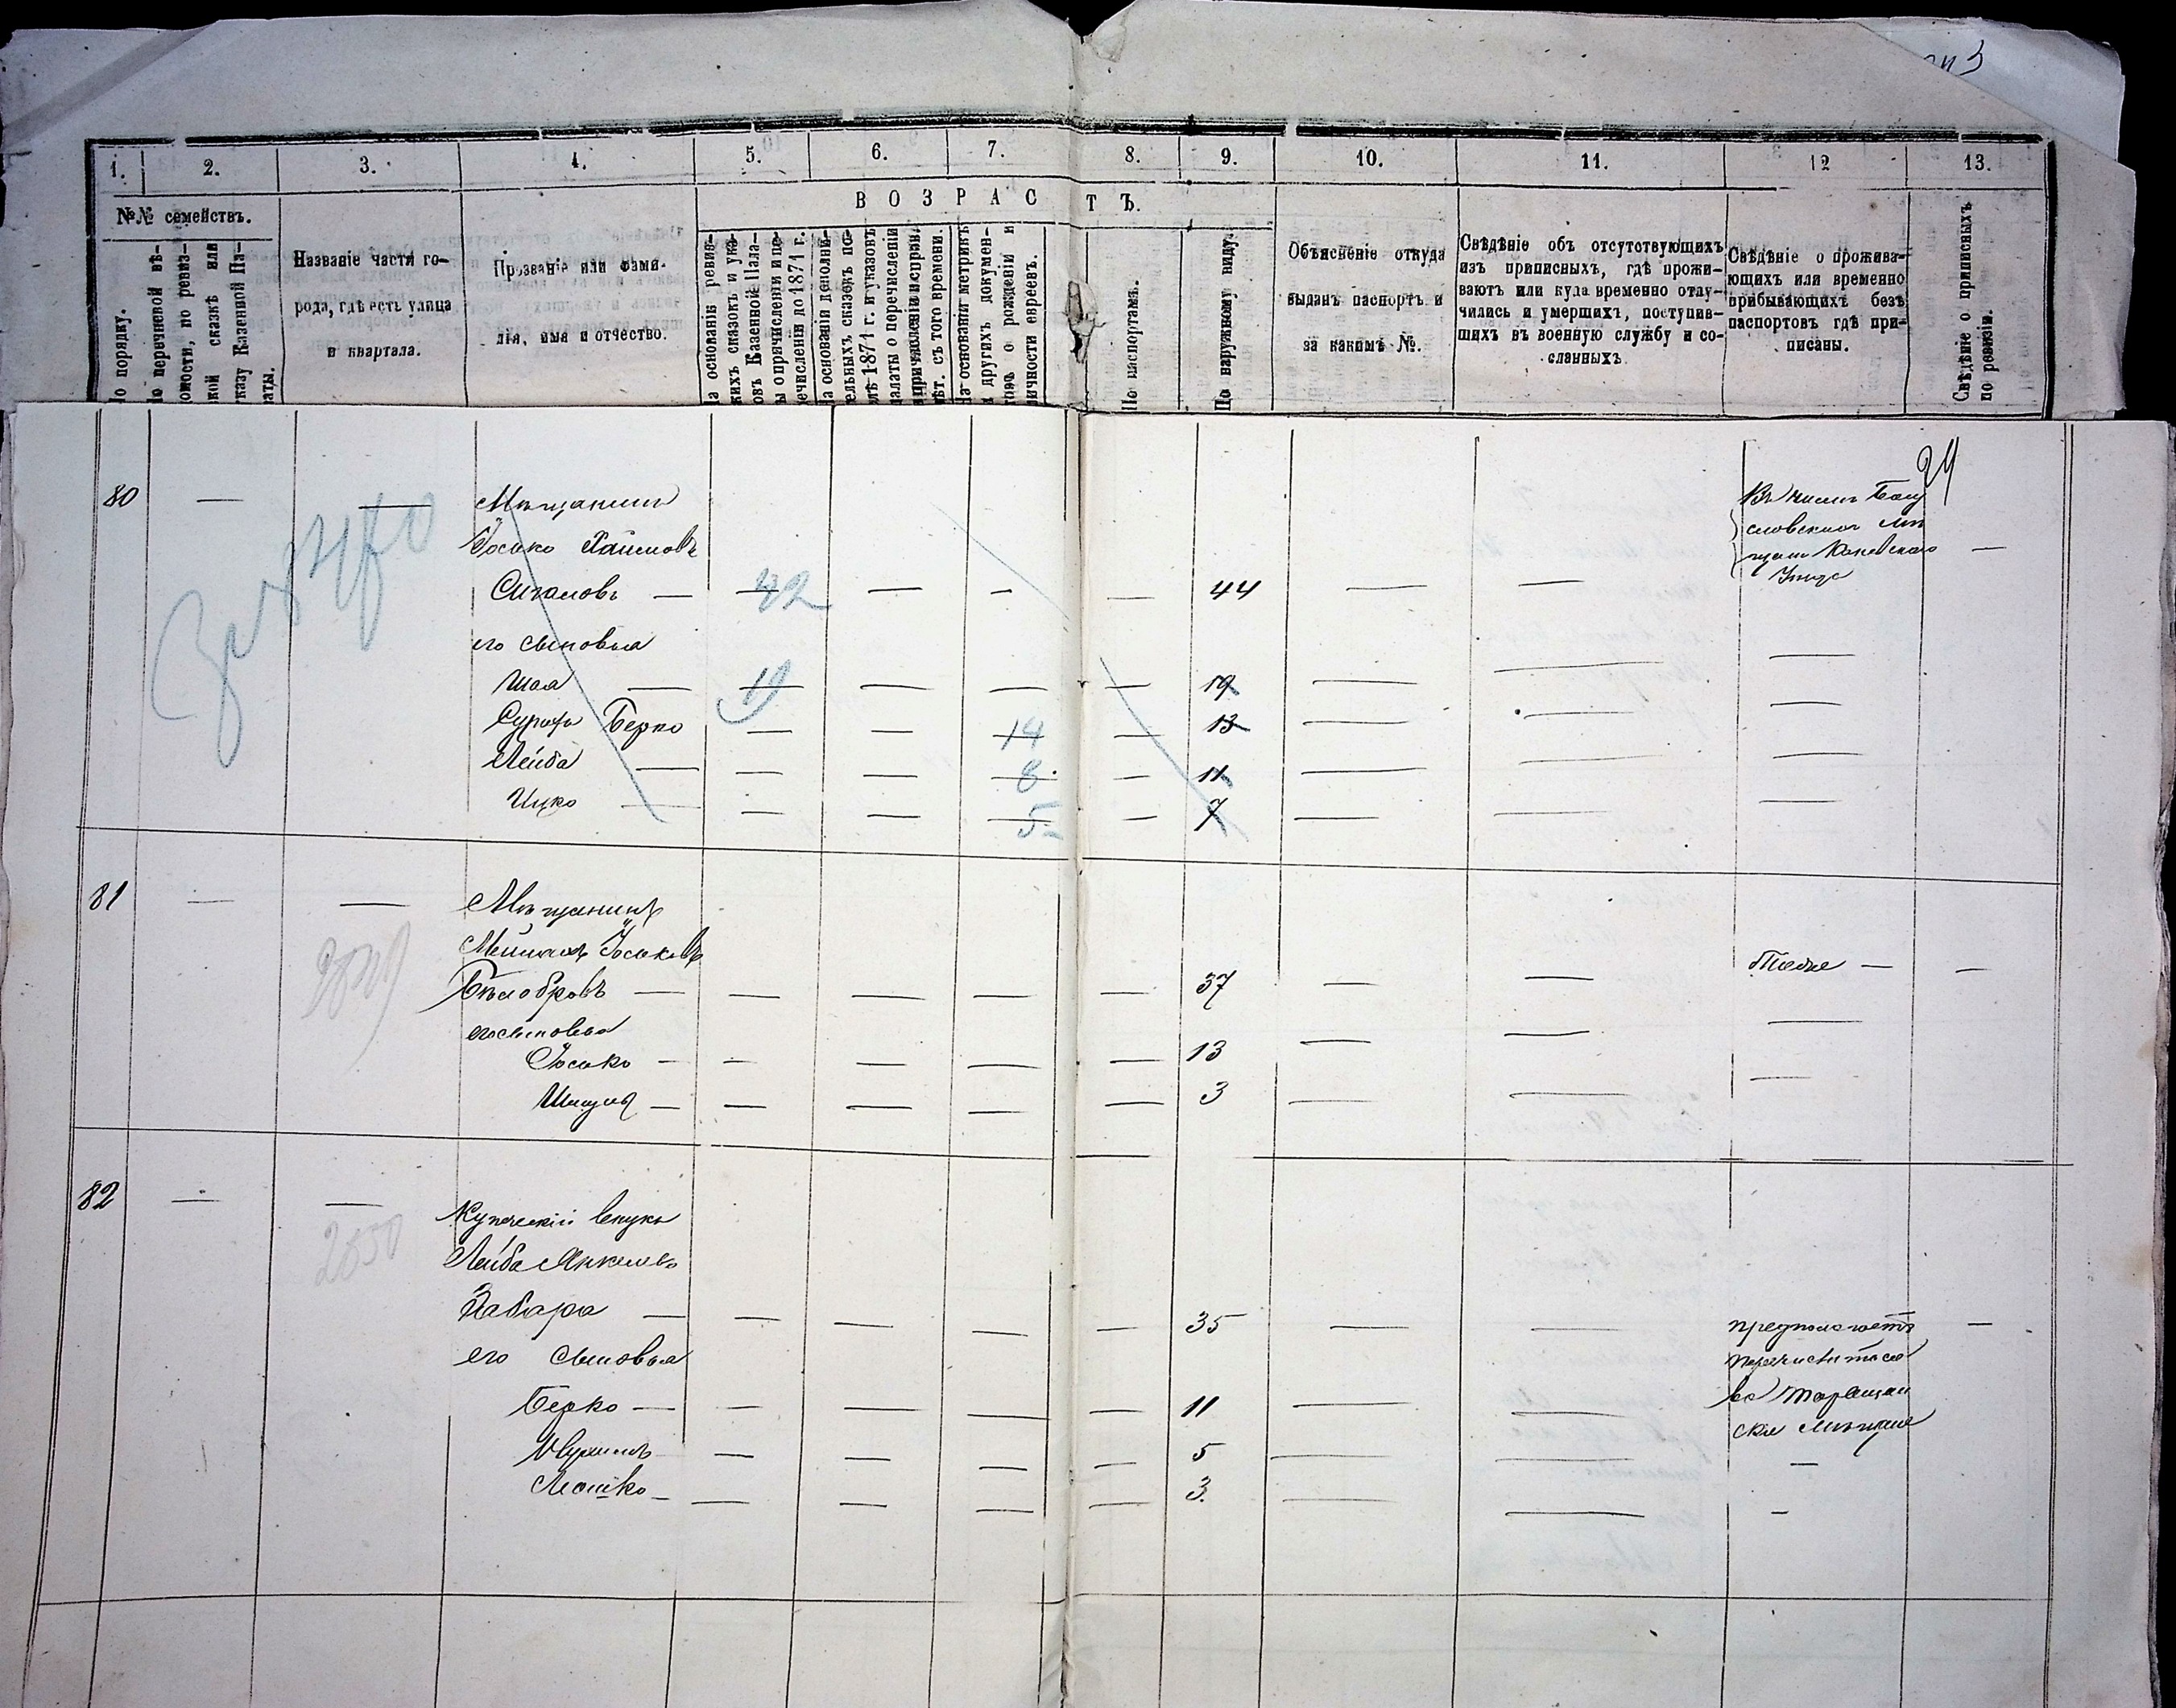 1. 2. 3. 4. 5. 6. 7. 8. 9. 10. 11. 12 13.
№№ семействъ.
В О З Р А С Т Ъ.
По порядку.
По перечневой вѣ-
домости, по ревиз-
ской сказкѣ или
указу Казенной Па-
латы.
Названіе части го-
рода, гдѣ есть улица
и квартала.
Прозваніе или фами-
лія, имя и отчество.
На основаніи ревиз-
скихъ сказокъ и ука-
зовъ Казенной Пала-
ты о причисленіи и пе-
речисленіи до 1871 г.
На основаніи дополни-
тельныхъ сказокъ по-
слѣ 1871 г. и указовъ
палаты о перечисленіи
и причисленіи и справ.
лѣт. съ того времени.
На основаніи метрикъ
и другихъ докумен-
товъ о рожденіи и
личности евреевъ.
По паспортамъ.
По наружному виду.
Объясненіе откуда
выданъ паспортъ и
за какимъ №.
Свѣдѣніе объ отсутствующихъ
изъ приписныхъ, гдѣ прожи-
ваютъ или куда временно отлу-
чились и умершихъ, поступив-
шихъ въ военную службу и со-
сланныхъ.
Свѣдѣніе о прожива-
ющихъ или временно
прибывающихъ безъ
паспортовъ гдѣ при-
писаны.
Свѣдѣніе о приписныхъ
по ревизіи.
80 — — Мѣщанинъ
Іосько Хаимовъ
Сигаловъ — 42 — — — 44 — —
Въ числѣ Богу
славскихъ мѣ
щанъ Каневскаго
Уѣзда
—
его сыновья
Шая — 19 — — — 19 — — —
Сурахъ Берко — — 14 — 13 — — —
Лейба — — — 8 — 11 — — —
Ицко — — — 5 — 7 — — —
81 — — Мѣщанинъ
Іоськовъ
Бѣлобровъ — — — — — 37 — — Тоже — —
его сыновья
Іосько — — — — 13 — — —
— — — — — 3 — — —
82 — — Купеческій внукъ
2550
Лейба Янкелевъ
Забара — — — — — 35 — —
предполагаетъ
перечислиться
въ Таращан
скіе мѣщане
—
его сыновья
Берко — — — — — 11 — —
— — — — 5 — — —
Мошко — — — — — 3. — — —